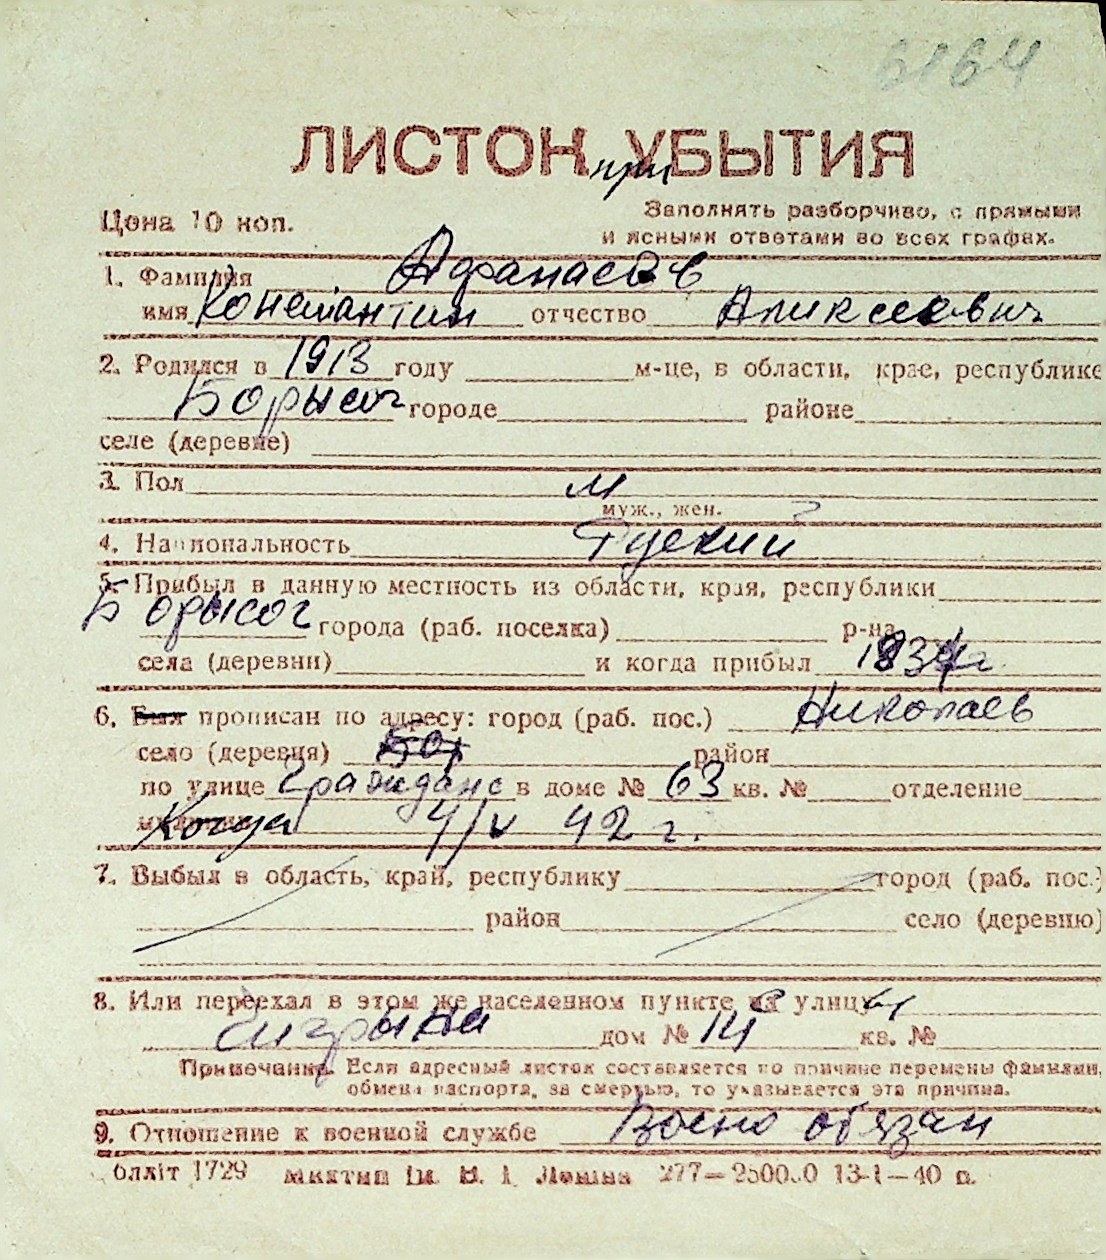 6164
ЛИСТОК при УБЫТИЯ
Цена 10 коп.
Заполнять разборчиво, с прямыми
и ясными ответами во всех графах.
1. Фамилия Афанасьев
имя Константин отчество Алексеевич
2. Родился в 1913 году м-це, в области, крае, республике
Борысог городе районе
селе (деревне)
3. Пол м
муж., жен.
4. Национальность Руский
5. Прибыл в данную местность из области, края, республики
Борысог города (раб. поселка) р-на
села (деревни) и когда прибыл
6. Был прописан по адресу: город (раб. пос.) Николаев
село (деревня) район
по улице Гражданс в доме № 63 кв. № отделение
Когда 4/V 42 г.
7. Выбыл в область, край, республику город (раб. пос.)
район село (деревню)
8. Или переехал в этом же населенном пункте с улицы
дом № 14 кв. №
Примечание. Если адресный листок составляется по причине перемены фамилии,
обмена паспорта, за смертью, то указывается эта причина.
9. Отношение к военной службе Воено обязан
блліт 1729 Миктип ім. В. І. Леніна 277—2500.0 13-1—40 п.